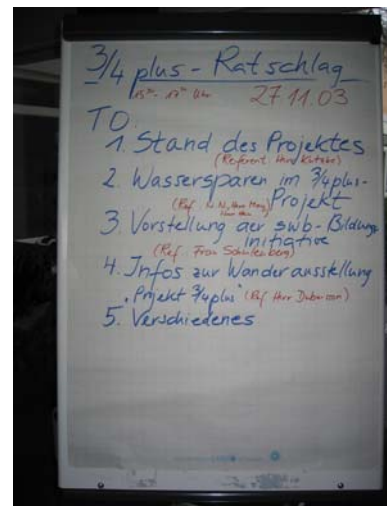 3/4 plus - Ratschlag
15⁰⁰ - 17⁰⁰ Uhr 27.11.03
TO
1. Stand des Projektes
(Referent: Herr
2. Wassersparen im 3/4plus-
Projekt
(Ref. N.N., Herr
3. Vorstellung der swb-Bildungs
initiative
(Ref. Frau Schulenberg)
4. Infos zur Wanderausstellung
"Projekt 3/4plus" (Ref Herr
5. Verschiedenes